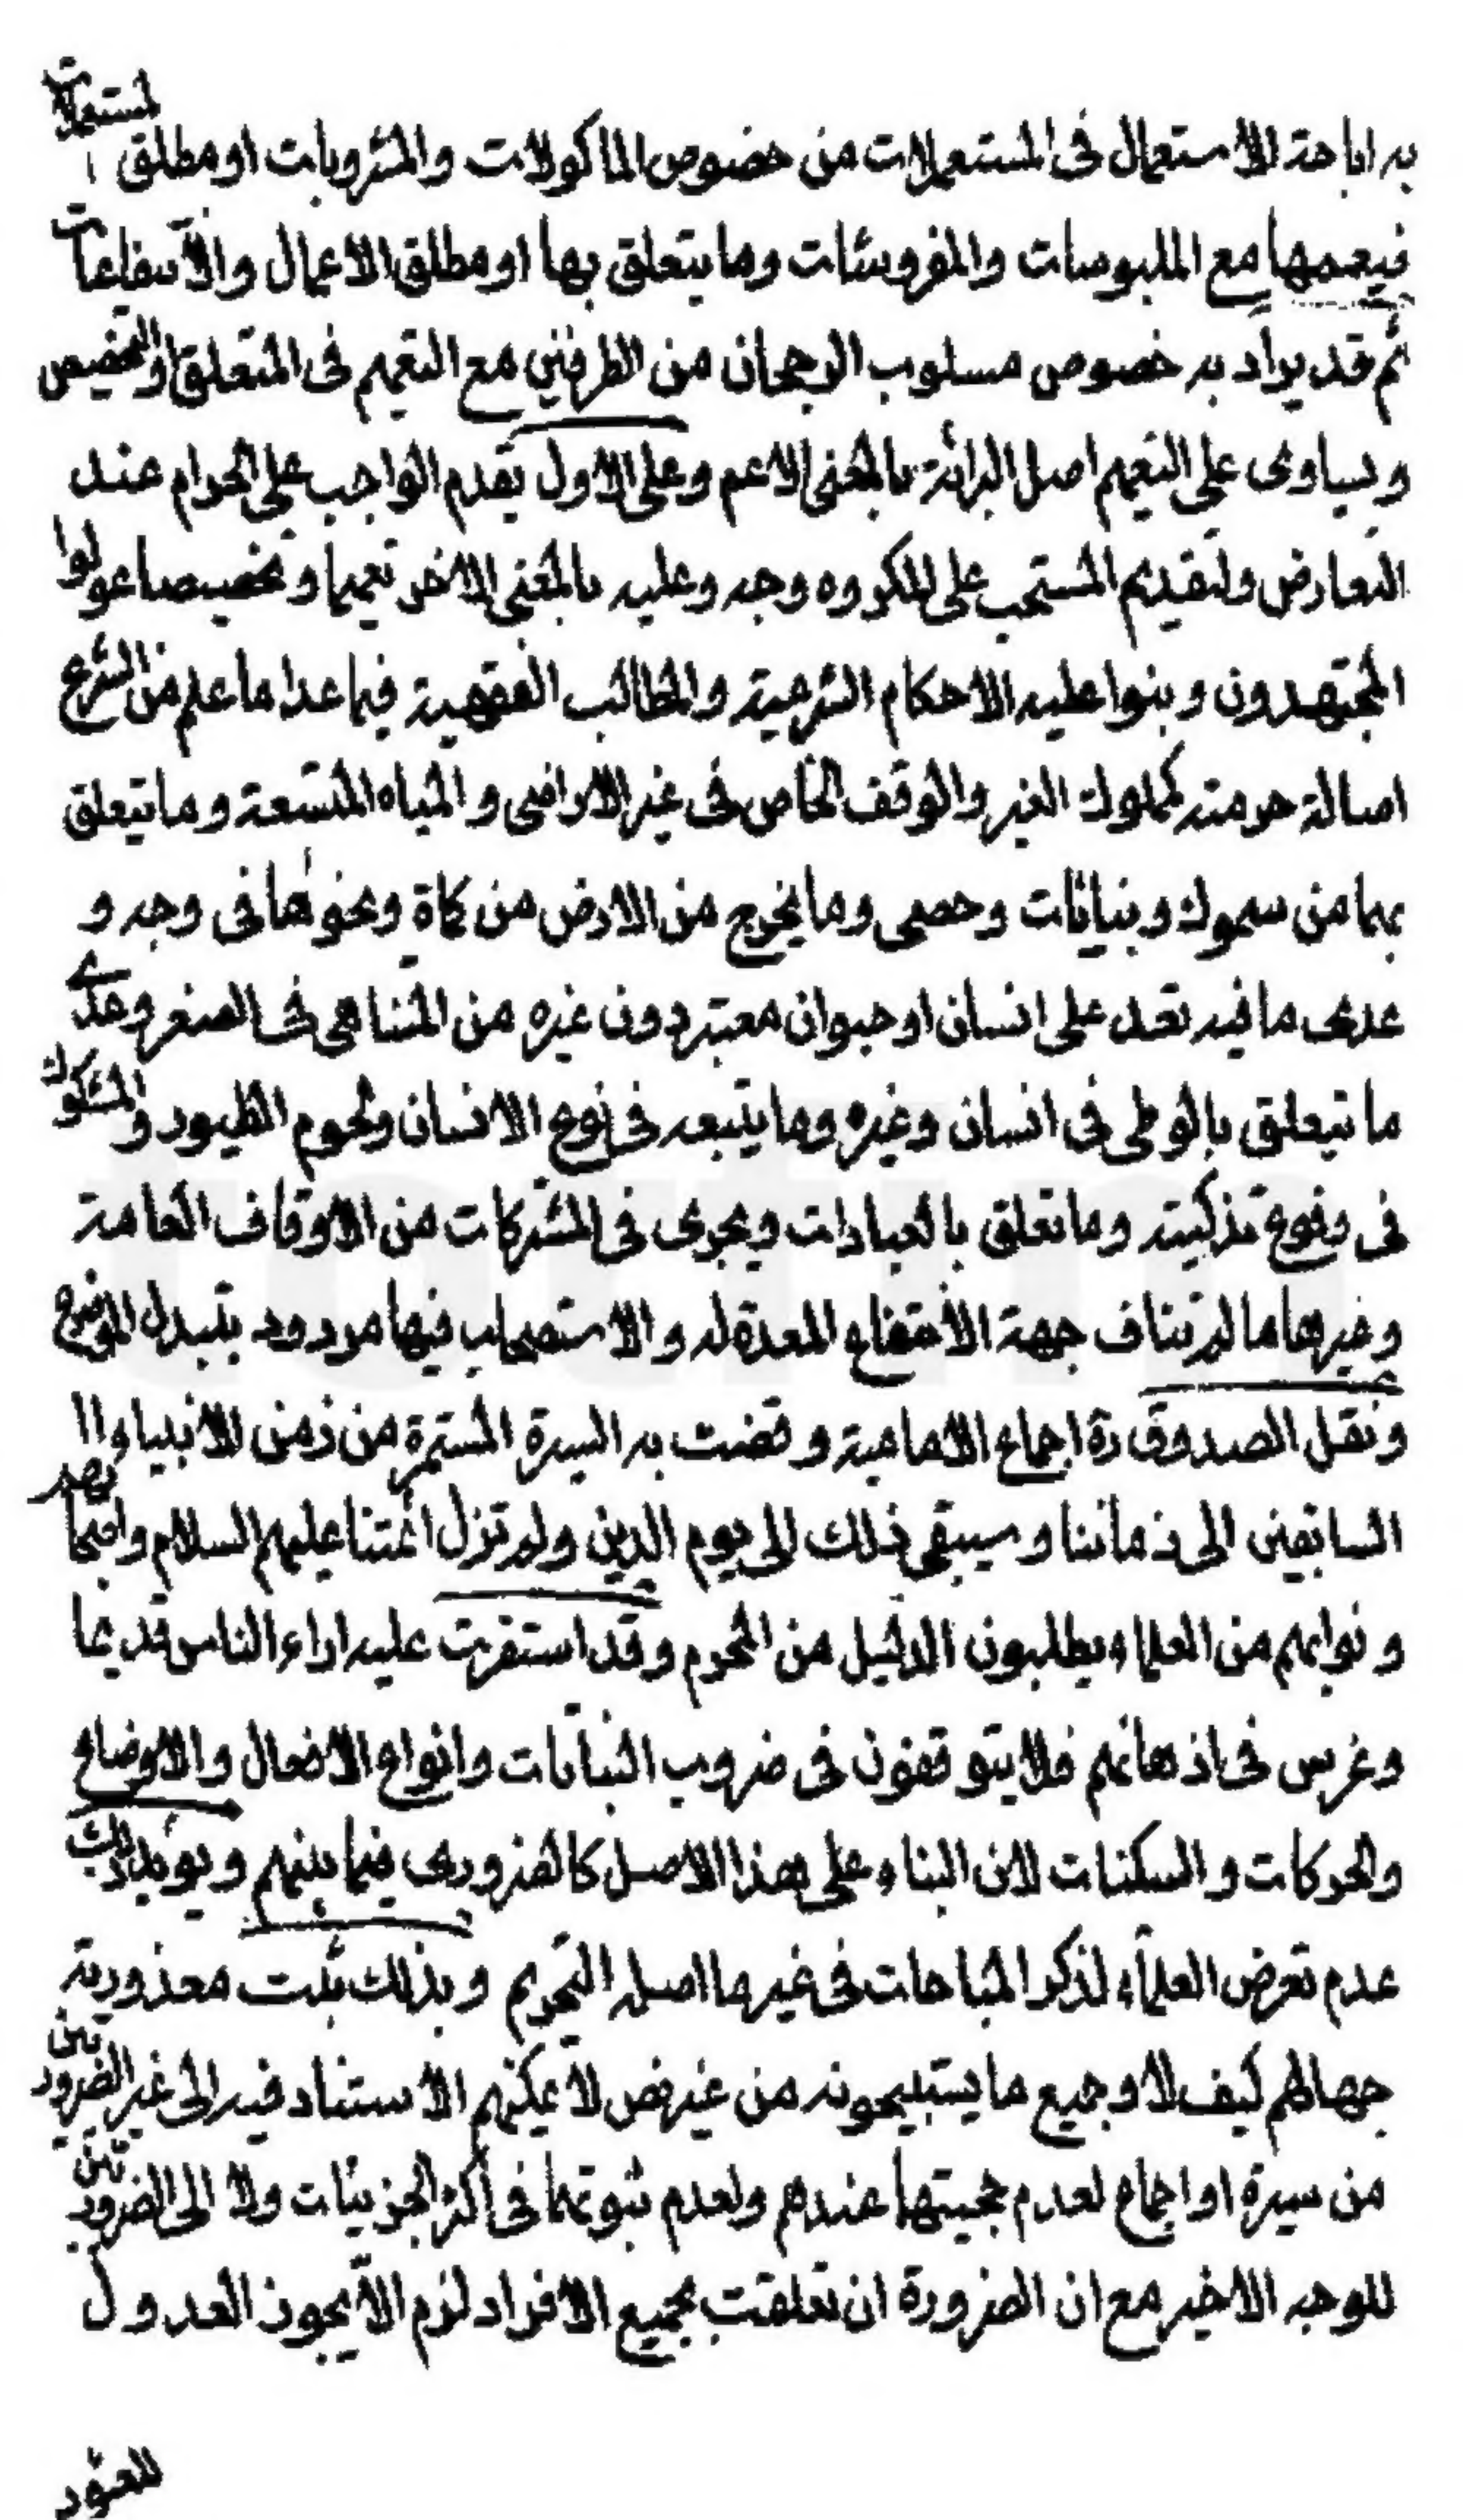 به اباحة الاستعمال فى المستعملات من خصوص الماكولات والمشروبات او مطلق المستعملات
فيعمها مع الملبوسات والمفروشات وما يتعلق بها او مطلق الاعمال والانتفاعات
ثم قد يراد به خصوص مسلوب الرجحان من الطرفين مع التعميم فى المتعلق او التخصيص
ويساوى على التعميم اصل البرائة بالمعنى الاعم وعلى الاول يقدم الواجب على الحرام عند
التعارض ولتقديم المستحب على المكروه وجه وعليه بالمعنى الاخر تعميما وتخصيصا عولوا
المجتهدون وبنوا عليه الاحكام الشرعية والمطالب الفقهية فيما عدا ما علم من الشرع
اصالة حرمته كملوك الغير والوقف الخاص فى غير الاراضى والمياه المتسعة وما تيعلق
بهما من سموك ونباتات وحصى وما يخرج من الارض من كماة ونحوها فى وجه و
عدى ما فيه تعد على انسان او حيوان معتبر دون غيره من المتناهى فى الصغر وعدى
ما تيعلق بالوطى فى انسان وغيره وما يتبعه فى نوع الانسان ولحوم الطيور والمشكوك
فى وقوع تذكيته وما تعلق بالعبادات ويجرى فى المشتركات من الاوقاف العامة
وغيرها ما لم تناف جهة الانتفاع المعدة له والاستصحاب فيها مردود بتبدل الموضوع
ونقل الصدوق ره اجماع الامامية وقضت به السيرة المستمرة من زمن الانبياء وا
السابقين الى زماننا وسيبقى ذلك الى يوم الدين ولم تزل ائمتنا عليهم السلام واصحابهم
ونوابهم من العلماء يطلبون الدليل من المحرم وقد استقرت عليه اراء الناس قديما
وغرس فى اذهانهم فلا يتوقفون فى ضروب النباتات وانواع الافعال والاوضاع
والحركات والسكنات لان البناء على هذا الاصل كالضرورى فيما بينهم ويؤيد ذلك
عدم تعرض العلماء لذكر المباحات فى غير ما اصله التحريم وبذلك ثبت معذورية
جهالهم كيف لا وجميع ما يستبيحونه من غير نص لا يمكنهم الاستناد فيه الى غير الضروريتين
من سيرة او اجماع لعدم حجيتها عندهم ولعدم ثبوتهما فى اكثر الجزئيات ولا الى الضروريتين
للوجه الاخير مع ان الضرورة ان تعلقت بجميع الافراد لزم الا يجوز العدول